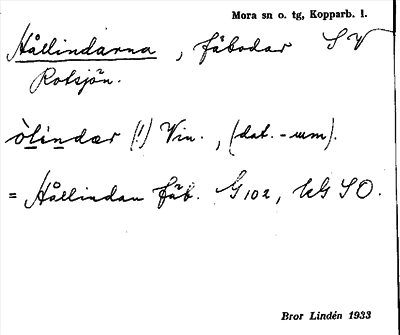 Mora sn o. tg, Kopparb. l.
Hållindarna, fäbodar SV
Rotsjön.
òlindær (!) Vin., (dat. -um).
= Hållindan fäb. G 102, kG SO.
Bror Lindén 1933